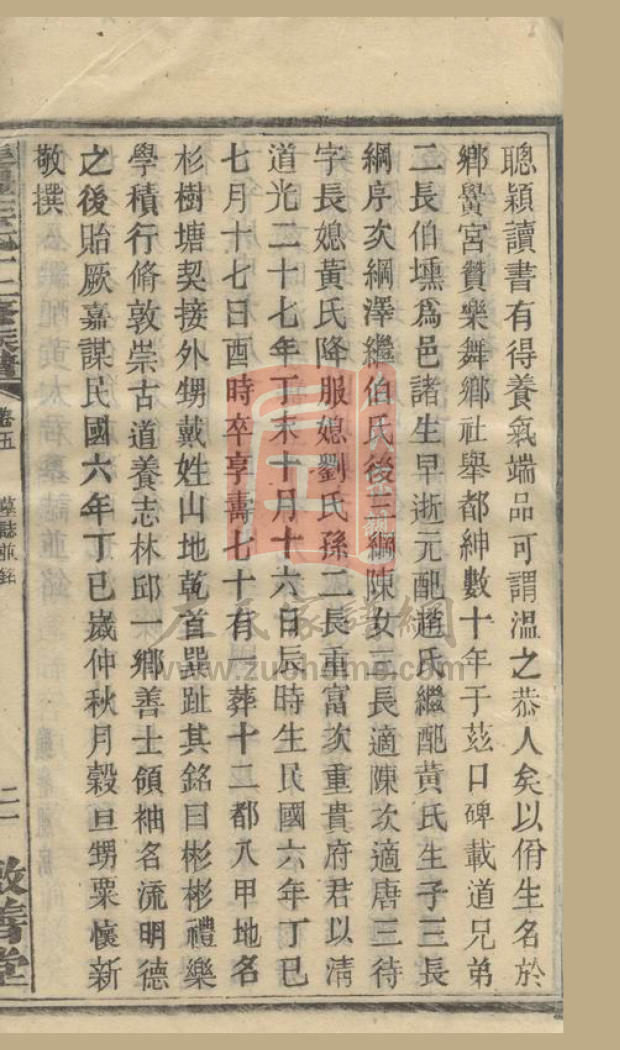 聰穎讀書有得養氣端品可謂溫之恭人矣以佾生名於
鄉黌宮贊樂舞鄉社舉都紳數十年于茲口碑載道兄弟
二長伯壎爲邑諸生早逝元配趙氏繼配黃氏生子三長
綱序次綱澤繼伯氏後三綱陳女三長適陳次適唐三待
字長媳黃氏降服媳劉氏孫二長重富次重貴府君以清
道光二十七年丁未十月十六日辰時生民國六年丁巳
七月十七日酉時卒享壽七十有一葬十二都八甲地名
杉樹塘契接外甥戴姓山地乾首巽趾其銘曰彬彬禮樂
學積行脩敦崇古道養志林邱一鄉善士領袖名流明德
之後貽厥嘉謀民國六年丁巳嵗仲秋月穀旦甥粟懷新
敬撰
卷五
墓誌並銘
二
敬善堂
左氏家譜網
www.zuohome.com